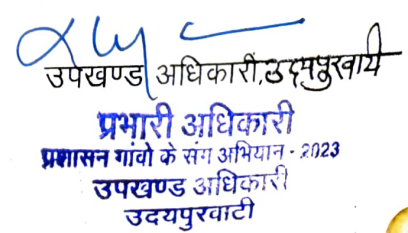 उपखण्ड अधिकारी, उदयपुरवाटी
प्रभारी अधिकारी
प्रशासन गांवो के संग अभियान - 2023
उपखण्ड अधिकारी
उदयपुरवाटी